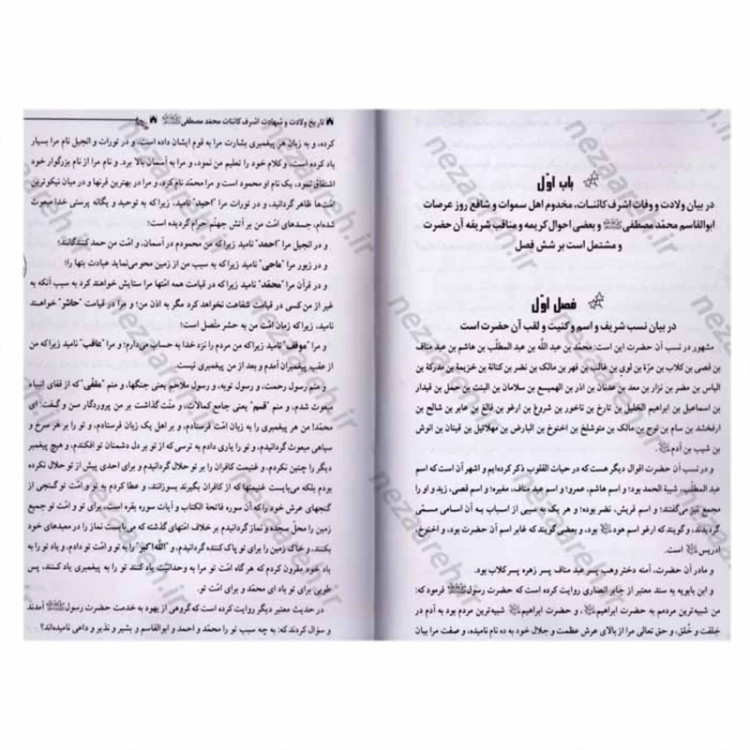 باب اوّل
در بیان ولادت و وفات اشرف کائنات، مخدوم اهل سموات و شافع روز عرصات
ابوالقاسم محمّد مصطفی ﷺ و بعضی احوال کریمه و مناقب شریفه آن حضرت
و مشتمل است بر شش فصل
فصل اوّل
در بیان نسب شریف و اسم و کنیت و لقب آن حضرت است
مشهور در نسب آن حضرت این است: محمّد بن عبد اللّه بن عبد المطّلب بن هاشم بن عبد مناف
بن قصی بن کلاب بن مرّة بن لوی بن غالب بن فهر بن مالک بن نضر بن کنانة بن خزیمة بن مدرکة بن
الیاس بن مضر بن نزار بن معد بن عدنان بن اذر بن الهمیسع بن سلامان بن البنت بن حمل بن قیدار
بن اسماعیل بن ابراهیم الخلیل بن تارخ بن ناخور بن شروغ بن ارغو بن فالغ بن عابر بن شالح بن
ارفخشد بن سام بن نوح بن مالک بن متوشلخ بن اخنوخ بن الیارض بن مهلائیل بن قینان بن انوش
بن شیب بن آدم
و در نسب آن حضرت اقوال دیگر هست که در حیات القلوب ذکر کرده‌ایم و اشهر آن است که اسم
عبد المطّلب، شیبة الحمد بود؛ و اسم هاشم، عمرو؛ و اسم عبد مناف، مغیره؛ و اسم قصی، زید و او را
مجمع نیز می‌گفتند؛ و اسم قریش، نضر بود؛ و هر یک به سببی از اسباب به آن اسامی مسمّی
گردیدند، و گویند که ارغو اسم هود بود، و بعضی گویند که غابر اسم آن حضرت بود، و اخنوخ،
ادریس است.
و مادر آن حضرت، آمنه دختر وهب بن عبد مناف پسر زهره پسر کلاب بود.
و ابن بابویه به سند معتبر از جابر انصاری روایت کرده است که حضرت رسول ﷺ فرمود که:
من شبیه‌ترین مردمم به حضرت ابراهیم، و حضرت ابراهیم شبیه‌ترین مردم بود به آدم در
خلقت و خُلق، و حق تعالی مرا از بالای عرش عظمت و جلال خود به ده نام نامیده، و صفت مرا بیان
تاریخ ولادت و شهادت اشرف کائنات محمّد مصطفی ﷺ
کرده، و به زبان هر پیغمبری بشارت مرا به قوم ایشان داده است، و در تورات و انجیل نام مرا بسیار
یاد کرده است، و کلام خود را تعلیم من نمود، و مرا به آسمان بالا برد، و نام مرا از نام بزرگوار خود
اشتقاق نمود، یک نام او محمود است و مرا محمّد نام کرد، و مرا در بهترین قرنها و در میان نیکوترین
امّت‌ها ظاهر گردانید، و در تورات مرا "احید" نامید، زیرا که به توحید و یگانه پرستی خدا مبعوث
شده‌ام، جسدهای امّت من بر آتش جهنّم حرام گردیده است؛
و در انجیل مرا "احمد" نامید زیرا که من محمودم در آسمان، و امّت من حمد کنندگانند؛
و در زبور مرا "ماحی" نامید زیرا که به سبب من از زمین محو می‌نماید عبادت بتها را؛
و در قرآن مرا "محمّد" نامید زیرا که در قیامت همه امّتها مرا ستایش خواهند کرد به سبب آنکه به
غیر از من کسی در قیامت شفاعت نخواهد کرد مگر به اذن من؛ و مرا در قیامت "حاشر" خواهند
نامید، زیرا که زمان امّت من به حشر متّصل است؛
و مرا "موقف" نامید زیرا که من مردم را نزد خدا به حساب می‌دارم؛ و مرا "عاقب" نامید زیرا که من
از عقب پیغمبران آمدم و بعد از من پیغمبری نیست.
و منم رسول رحمت، و رسول توبه، و رسول ملاحم یعنی جنگها، و منم "مقفّی" که از قفای انبیاء
مبعوث شدم، و منم "قسم" یعنی جامع کمالات، و منّت گذاشت بر من پروردگار من و گفت: ای
محمّد! من هر پیغمبری را به زبان امّت او فرستادم، و بر اهل یک زبان فرستادم، و تو را بر هر سرخ و
سیاهی مبعوث گردانیدم، و تو را یاری دادم به ترسی که از تو بر دل دشمنان تو افکندم، و هیچ پیغمبر
دیگر را چنین نکردم، و غنیمت کافران را بر تو حلال گردانیدم و برای احدی پیش از تو حلال نکرده
بودم بلکه می‌بایست غنیمتها که از کافران بگیرند بسوزانند، و عطا کردم به تو و امّت تو گنجی از
گنجهای عرش خود را که آن سوره فاتحة الکتاب و آیات سوره بقره است، و برای تو و امّت تو جمیع
زمین را محلّ سجده و نماز گردانیدم بر خلاف امّتهای گذشته که می‌بایست نماز را در معبدهای خود
بکنند، و خاک زمین را برای تو پاک کننده گردانیدم، و "اللّه اکبر" را به تو و امّت تو دادم، و یاد تو را به
یاد خود مقرون کردم که هرگاه امّت تو مرا به وحدانیّت یاد کنند تو را به پیغمبری یاد کنند، پس
طوبی برای تو باد ای محمّد و برای امّت تو.
در حدیث معتبر دیگر روایت کرده است که گروهی از یهود به خدمت حضرت رسول ﷺ آمدند
و سؤال کردند که: به چه سبب تو را محمّد و احمد و ابوالقاسم و بشیر و نذیر و داعی نامیده‌اند؟
nezaareh.ir